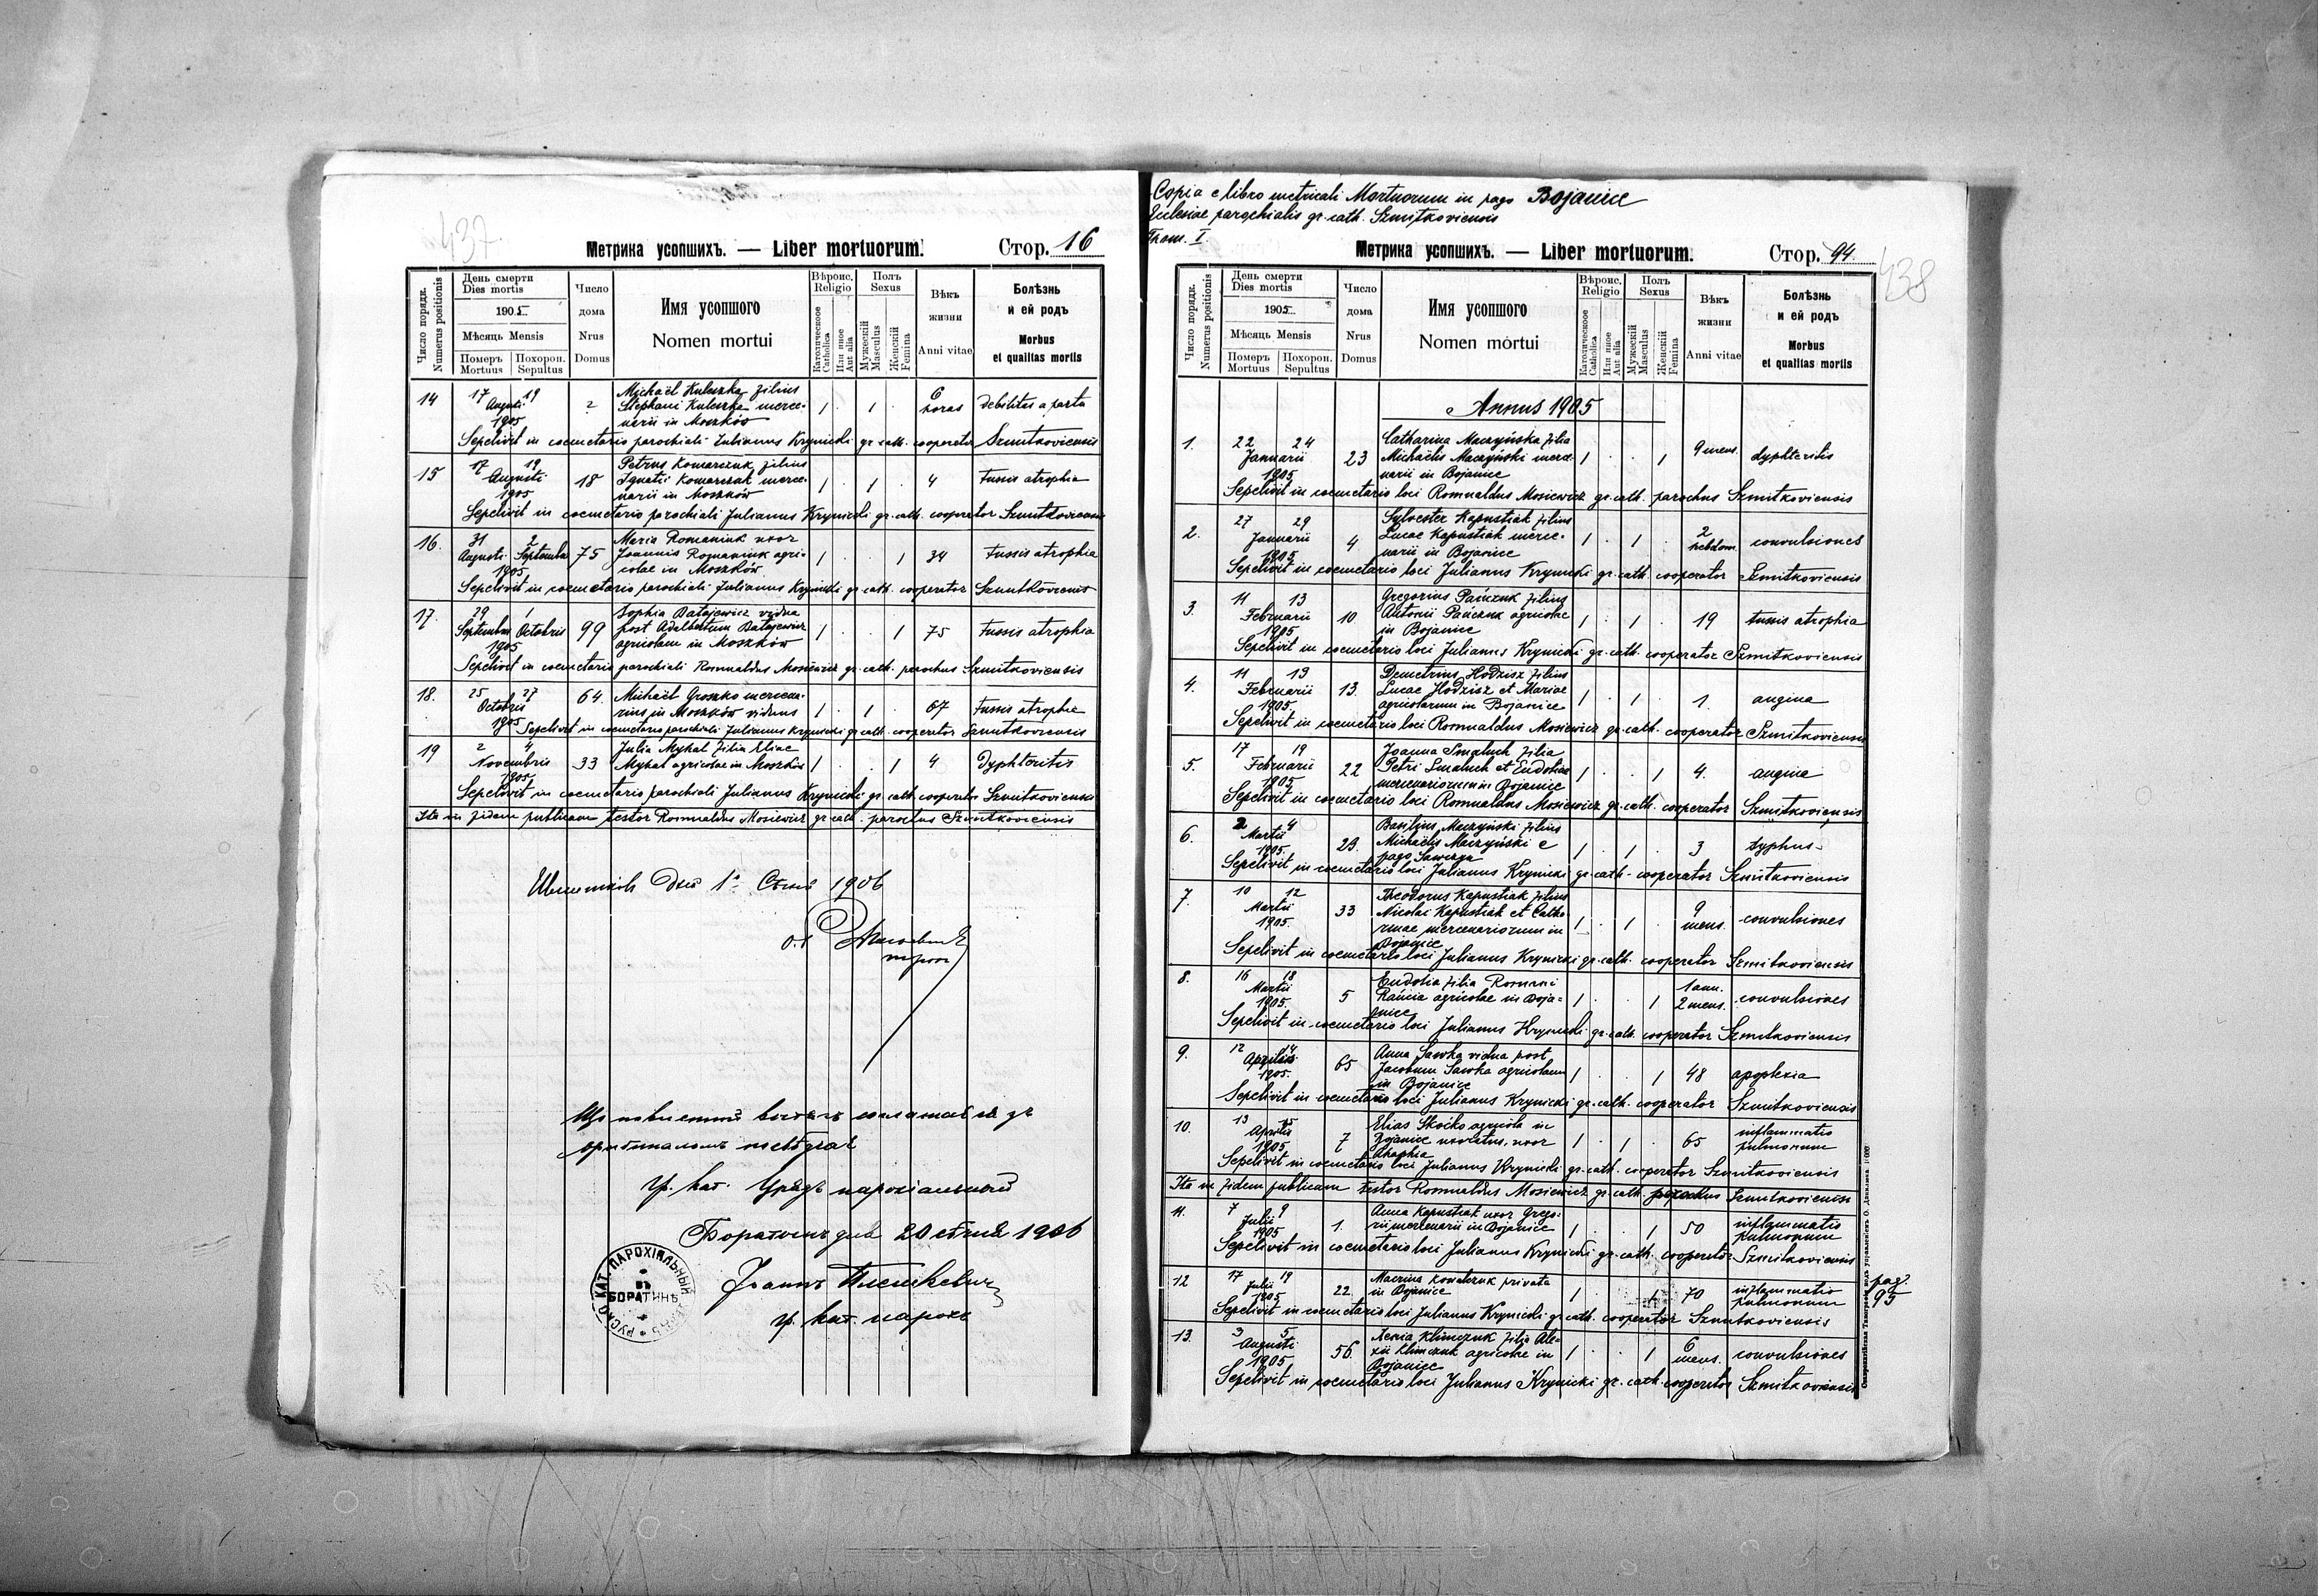 437
Метрика усопшихъ. — Liber mortuorum.
Стор. 16
Число порядк.
Numerus positionis
День смерти
Dies mortis
1905
Мѣсяць Mensis
Померъ Mortuus
Похорон. Sepultus
Число дома
Nrus Domus
Имя усопшого
Nomen mortui
Вѣроис.
Religio
Католическое
Catholica
Или иное
Aut alia
Полъ
Sexus
Мужескій
Masculus
Женскій
Femina
Вѣкъ жизни
Anni vitae
Болѣзнь и ей родъ
Morbus et qualitas mortis
14 17 19 Michaël Kuleszka filius 6
Augusti 2 Stephani Kuleszka merce- 1 . 1 . horas debilitas a partu
1905 narii in Moszków
Sepelivit in coemetario parochiali Julianus Krynicki gr. cath. cooperator Szmitkoviensis
15 17 19 Petrus Komarczuk filius
Augusti 18 Ignatii Komarczuk merce- 1 . 1 . 4 tussis atrophia
1905 narii in Moszków
Sepelivit in coemetario parochiali Julianus Krynicki gr. cath. cooperator Szmitkoviensis
16. 31 2 Maria Romaniuk uxor
Augusti Septembr 75 Joannis Romaniuk agri- 1 . . 1 34 tussis atrophia
1905 colae in Moszków
Sepelivit in coemetario parochiali Julianus Krynicki gr. cath. cooperator Szmitkoviensis
17. 29 1 Sophia Batajewicz vidua
Septembris Octobris 99 post Adalbertum Batajewicz 1 . . 1 75 tussis atrophia
1905 agricolam in Moszków
Sepelivit in coemetario parochiali Romualdus Mosiewicz gr. cath. parochus Szmitkoviensis
18. 25 27 64. Michaël Groszko mercena-
Octobris rius in Moszków viduus 1 . 1 . 67 tussis atrophia
1905 Sepelivit in coemetario parochiali Julianus Krynicki gr. cath. cooperator Szmitkoviensis
19 2 4 Julia Mykal filia Eliae
Novembris 33 Mykal agricolae in Moszków 1 . . 1 4 Dyphteritis
1905
Sepelivit in coemetario parochiali Julianus Krynicki gr. cath. cooperator Szmitkoviensis
Ita in fidem publicam testor Romualdus Mosiewicz gr. cath. parochus Szmitkoviensis
дня 1 1906
гр. кат. Урядъ парохіяльный
дня 20 1906
Іоаннъ
гр. кат. парохъ
РУСКО КАТ. ПАРОХІЯЛЬНЫЙ УРЯДЪ
въ
БОРАТИНѢ
Copia e libro metricali Mortuorum in pago Bojanice
Eclesiae parochialis gr. cath. Szmitkoviensis
Thom. I.
Метрика усопшихъ. — Liber mortuorum.
Стор. 94.
438
Число порядк.
Numerus positionis
День смерти
Dies mortis
1905
Мѣсяць Mensis
Померъ Mortuus
Похорон. Sepultus
Число дома
Nrus Domus
Имя усопшого
Nomen mortui
Вѣроис.
Religio
Католическое
Catholica
Или иное
Aut alia
Полъ
Sexus
Мужескій
Masculus
Женскій
Femina
Вѣкъ жизни
Anni vitae
Болѣзнь и ей родъ
Morbus et qualitas mortis
Annus 1905
1. 22 24 Catharina Maczyńska filia
Januarii 23 Michaëlis Maczyński merce- 1 . . 1 9 mens. dyphteritis
1905 narii in Bojanice
Sepelivit in coemetario loci Romualdus Mosiewicz gr. cath. parochus Szmitkoviensis
2. 27 29 Sylvester Kapustiak filius
Januarii 4 Lucae Kapustiak merce- 1 . 1 . 2 hebdom. convulsiones
1905 narii in Bojanice
Sepelivit in coemetario loci Julianus Krynicki gr. cath. cooperator Szmitkoviensis
3. 11 13 Gregorius Pańczuk filius
Februarii 10 Antonii Pańczuk agricolae 1 . 1 . 19 tussis atrophia
1905 in Bojanice
Sepelivit in coemetario loci Julianus Krynicki gr. cath. cooperator Szmitkoviensis
4. 11 13 Demetrius Hodzisz filius
Februarii 13. Lucae Hodzisz et Mariae 1 . 1 . 1. angina
1905. agricolarum in Bojanice
Sepelivit in coemetario loci Romualdus Mosiewicz gr. cath. cooperator Szmitkoviensis
5. 17 19 Joanna Smaluch filia
Februarii 22 Petri Smaluch et Eudotiae 1 . . 1 4. angina
1905 mercenariorum in Bojanice
Sepelivit in coemetario loci Romualdus Mosiewicz gr. cath. cooperator Szmitkoviensis
6. 2 4 Basilius Maczyński filius
Martii 23. Michaëlis Maczyński e 1 . 1 . 3 typhus
1905. pago Sawczyn
Sepelivit in coemetario loci Julianus Krynicki gr. cath. cooperator Szmitkoviensis
7. 10 12 Theodorus Kapustiak filius
Martii 33 Nicolai Kapustiak et Catha- 1 . 1 . 9 mens. convulsiones
1905. rinae mercenariorum in
Bojanice
Sepelivit in coemetario loci Julianus Krynicki gr. cath. cooperator Szmitkoviensis
8. 16 18 Eudotia filia Romani
Martii 5 agricolae in Boja- 1 . . 1 1 ann. 2 mens. convulsiones
1905. nice
Sepelivit in coemetario loci Julianus Krynicki gr. cath. cooperator Szmitkoviensis
9. 12 14 Anna Sawka vidua post
Aprilis 65 Jacobum Sawka agricolam 1 . . 1 48 apoplexia
1905. in Bojanice
Sepelivit in coemetario loci Julianus Krynicki gr. cath. cooperator Szmitkoviensis
10. 13 15 Elias Skoćko agricola in
Aprilis 7 Bojanice uxoratus. uxor 1 . 1 . 65 inflammatio pulmonum
1905
Sepelivit in coemetario loci Julianus Krynicki gr. cath. cooperator Szmitkoviensis
Ita in fidem publicam testor Romualdus Mosiewicz gr. cath. parochus Szmitkoviensis
11. 7 9 Anna Kapustiak uxor Grego-
Julii 1. rii mercenarii in Bojanice 1 . . 1 50 inflammatio pulmonum
1905
Sepelivit in coemetario loci Julianus Krynicki gr. cath. cooperator Szmitkoviensis
12 17 19 Macrina Kowalczuk privata
Julii 22. in Bojanice 1 . . 1 70 inflammatio pulmonum
1905
Sepelivit in coemetario loci Julianus Krynicki gr. cath. cooperator Szmitkoviensis
pag. 95
13. 3 5 Xenia Klimczuk filia Ale-
Augusti 56. xii Klimczuk agricolae in 1 . . 1 6 mens. convulsiones
1905 Bojanice
Sepelivit in coemetario loci Julianus Krynicki gr. cath. cooperator Szmitkoviensis